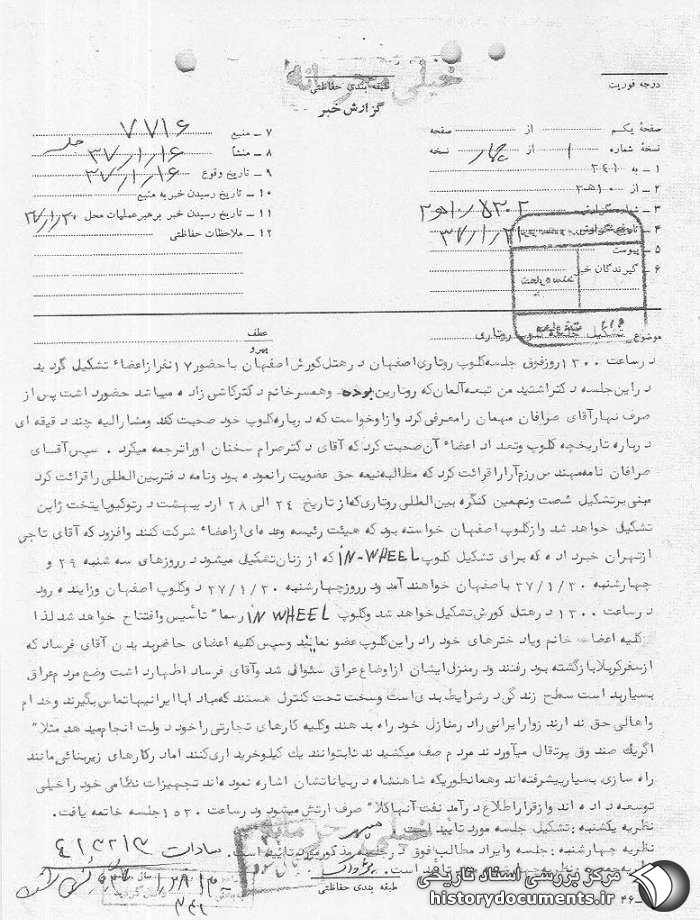 خیلی محرمانه
درجه فوریت
طبقه بندی حفاظتی
گزارش خبر
صفحهٔ یکم از صفحه
نسخهٔ شماره ۱ از چهار نسخه
۱ ـ به ۳۴۱
۲ ـ از ۱۰ ﻫ
۳ ـ شماره گزارش
۴ ـ تاریخ گزارش
۵ ـ پیوست
۶ ـ گیرندگان خبر
۷ ـ منبع ۷۷۱۶
۸ ـ منشأ
۹ ـ تاریخ وقوع ۳۷/۱/۱۶
۱۰ ـ تاریخ رسیدن خبر به منبع
۱۱ ـ تاریخ رسیدن خبر برهبر عملیات محل ۳۷/۱/۲۰
۱۲ ـ ملاحظات حفاظتی
موضوع تشکیل جلسه کلوپ روتاری
عطف
پیرو
در ساعت ۱۳۰۰ روز فوق جلسه کلوپ روتاری اصفهان در هتل کورش اصفهان با حضور ۱۷ نفر از اعضاء تشکیل گردید
در این جلسه دکتر اشتید من تبعه آلمان که روتارین بوده و همسر خانم دکتر کاشی زاده میباشد حضور داشت پس از
صرف نهار آقای صرافان مهمان را معرفی کرد و از او خواست که درباره کلوپ خود صحبت کند و مشارالیه چند دقیقه ای
درباره تاریخچه کلوپ و تعداد اعضاء آن صحبت کرد که آقای دکتر صرام سخنان او را ترجمه میکرد . سپس آقای
صرافان نامه مهندس رزم آرا را قرائت کرد که مطالبه نیمه حق عضویت را نموده بود و نامه دفتر بین المللی را قرائت کرد
مبنی بر تشکیل شصت و نهمین کنگره بین المللی روتاری که از تاریخ ۲۴ الی ۲۸ اردیبهشت در توکیو پایتخت ژاپن
تشکیل خواهد شد و از کلوپ اصفهان خواسته بود که هیئت رئیسه و عده ای از اعضاء شرکت کنند و افزود که آقای تاجی
از تهران خبر داده که برای تشکیل کلوپ IN-WHEEL که از زنان تشکیل میشود در روزهای سه شنبه ۲۹ و
چهارشنبه ۳۷/۱/۳۰ باصفهان خواهند آمد و روز چهارشنبه ۳۷/۱/۳۰ دو کلوپ اصفهان و زاینده رود
در ساعت ۱۳۰۰ در هتل کورش تشکیل خواهد شد و کلوپ IN WHEEL رسما" تأسیس و افتتاح خواهد شد لذا
کلیه اعضاء خانم و یا دخترهای خود را در این کلوپ عضو نمایند و سپس کلیه اعضای حاضر بدیدن آقای فرساد که
از سفر کربلا بازگشته بود رفتند و در منزل ایشان از اوضاع عراق سئوالی شد و آقای فرساد اظهار داشت وضع مردم عراق
بسیار بد است سطح زندگی در شرایط بدی است و سخت تحت کنترل هستند که مبادا با ایرانیها تماس بگیرند و خدام
و اهالی حق ندارند زوار ایرانی را در منازل خود راه بدهند و کلیه کارهای تجارتی را خود دولت انجام میدهد مثلا"
اگر یک صندوق پرتقال میآوردند مردم صف میکشیدند تا بتوانند یک کیلو خریداری کنند اما در کارهای زیربنائی مانند
راه سازی بسیار پیشرفته اند و همانطوریکه شاهنشاه در بیاناتشان اشاره نموده اند تجهیزات نظامی خود را خیلی
توسعه داده اند و از قرار اطلاع درآمد نفت آنها کلا" صرف ارتش میشود و در ساعت ۱۵۳۰ جلسه خاتمه یافت.
نظریه یکشنبه : تشکیل جلسه مورد تأیید است
نظریه چهارشنبه : جلسه و ایراد مطالب فوق در جلسه مذکور مورد تأیید است. سادات
تأیید است.
طبقه بندی حفاظتی
مرکز بررسی اسناد تاریخی
historydocuments.ir